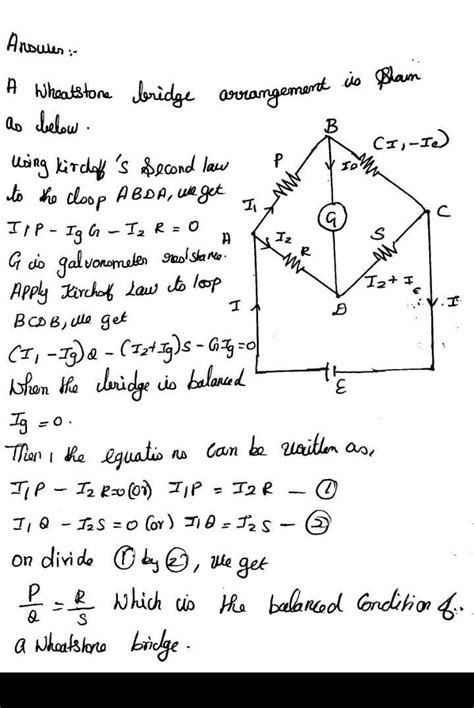 Answer:-
A Wheatstone bridge arrangement is Shown
as below.
Using Kirchoff's Second law
to the cloop ABDA, we get
I1P - IgG - I2 R = 0
G is galvonometer resistance.
Apply Kirchof Law to loop
BCDB, we get
(I1 - Ig)Q - (I2+Ig)S - GIg=0
When the bridge is balanced
Ig = 0.
Then, the equations can be written as,
I1P - I2R=0 (or) I1P = I2R - ①
I1Q - I2S = 0 (or) I1Q = I2S - ②
on divide ① by ②, we get
P/Q = R/S Which is the balanced Condition of..
a Wheatstone bridge.
B
P
(I1-Ie)
I1
IG
G
A
I2
R
S
C
I2+I
D
I
I
E